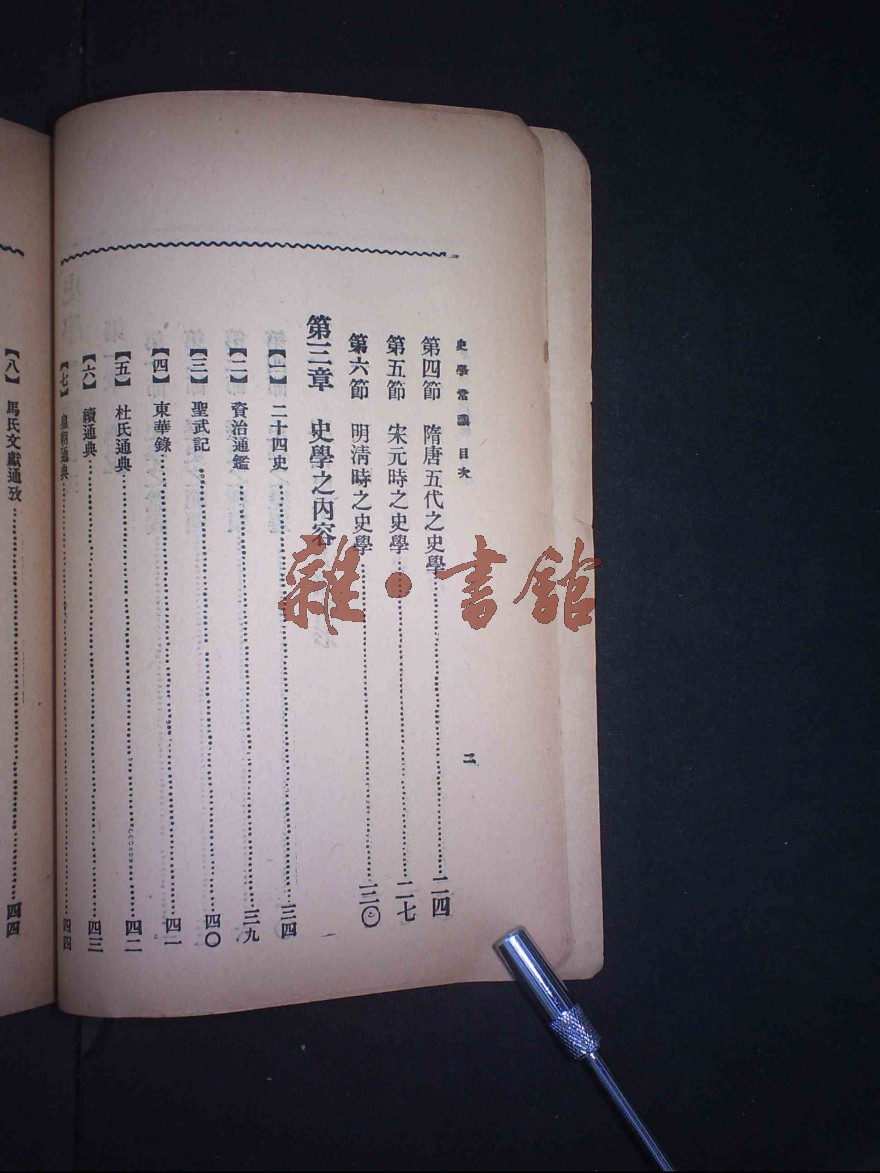 史學常識 目次 二
第四節 隋唐五代之史學……二四
第五節 宋元時之史學……二七
第六節 明清時之史學……三〇
第三章 史學之內容
【一】 二十四史……三四
【二】 資治通鑑……三九
【三】 聖武記……四〇
【四】 東華錄……四一
【五】 杜氏通典……四二
【六】 續通典……四三
【七】 皇朝通典……四四
【八】 馬氏文獻通攷……四四
雜·書館